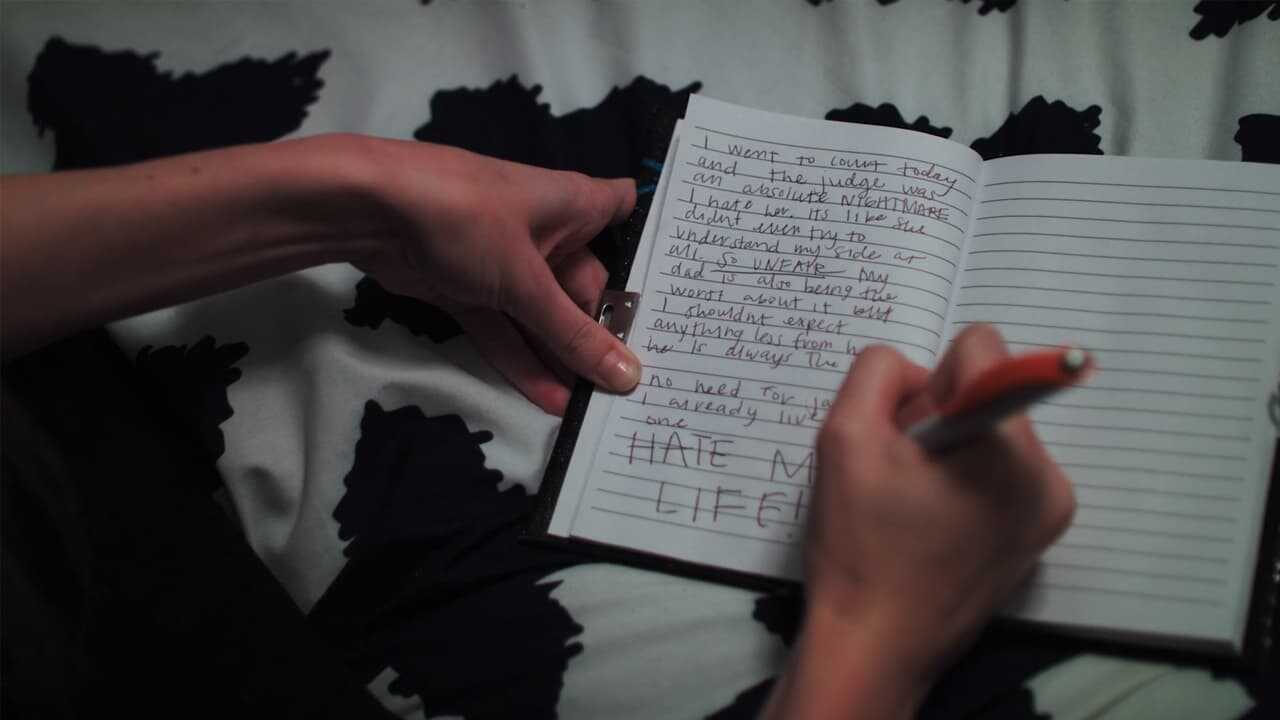 I went to court today
and the judge was
an absolute NIGHTMARE
I hate her. Its like she
didnt even try to
understand my side at
all. SO UNFAIR My
dad is also being the
worst about it
I shouldnt expect
anything less from
he is always the
no need for
I already live
one
HATE
LIFE